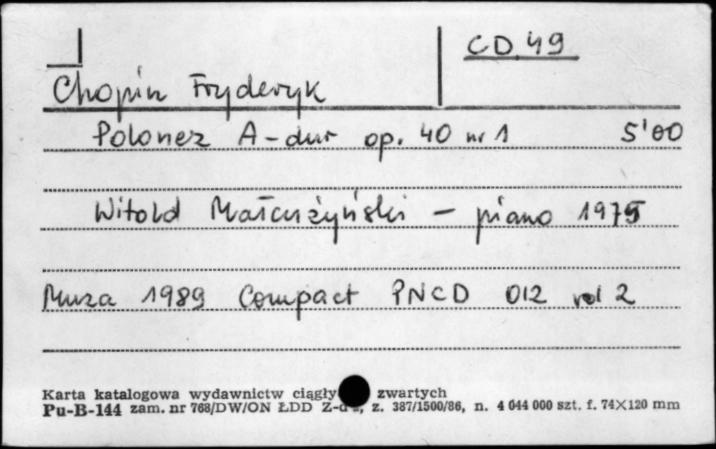 CD 49
Chopin Fryderyk
Polonez A-dur op. 40 nr 1 5'00
Witold Małcużyński - piano 1975
Muza 1989 Compact PNCD 012 vol 2
Karta katalogowa wydawnictw ciągły zwartych
Pu-B-144 zam. nr 768/DW/ON ŁDD z. 387/1500/86, n. 4 044 000 szt. f. 74×120 mm